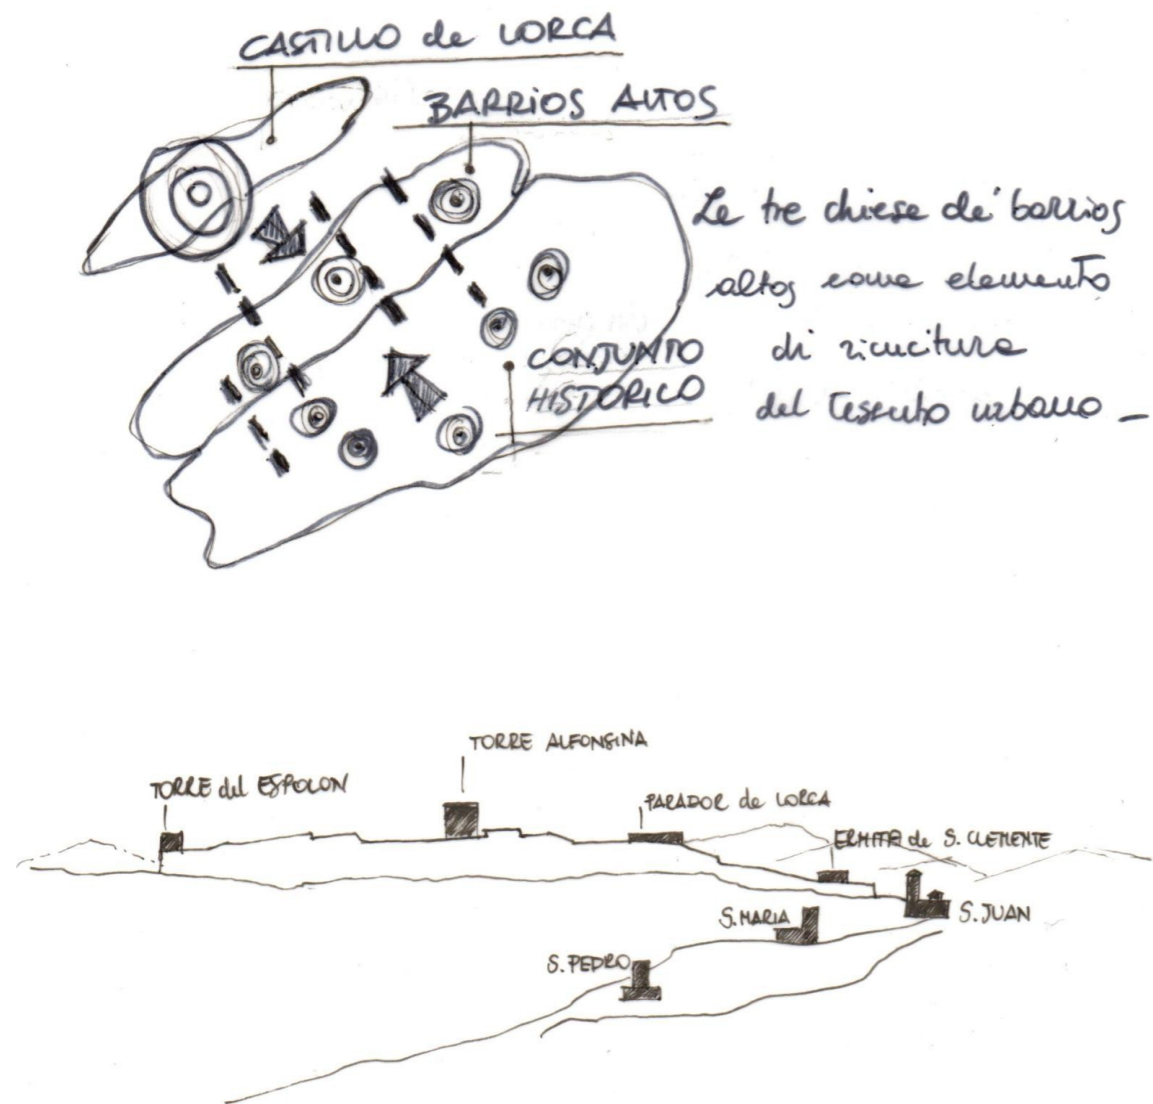 CASTILLO de LORCA
BARRIOS ALTOS
Le tre chiese de' barrios
altos come elemento
di ricucitura
del tessuto urbano –
CONJUNTO
HISTORICO
TORRE ALFONSINA
TORRE del ESPOLON
PARADOR de LORCA
ERMITA de S. CLEMENTE
S. MARIA
S. JUAN
S. PEDRO